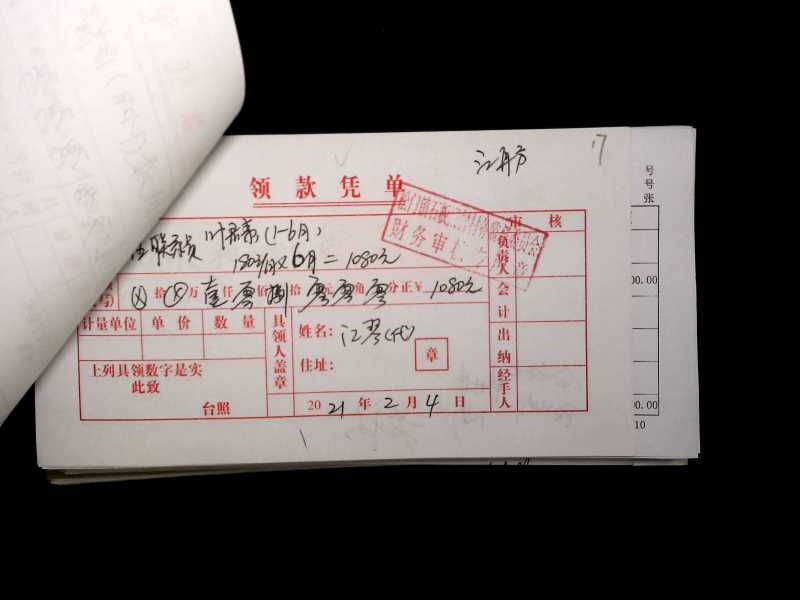 17
领款凭单
财务审
审核
联系员 叶 (1-6月)
180元/月×6月=1080元
拾 万 壹 仟 零 佰 捌 拾 零 元 零 角 零 分正¥ 1080元
计量单位 单价 数量
上列具领数字是实
此致
台照
具领人盖章
姓名: 江琴(代)
住址:
章
2021年2月4日
负责人
会计
出纳
经手人
号
号
张
00.00
00.00
10